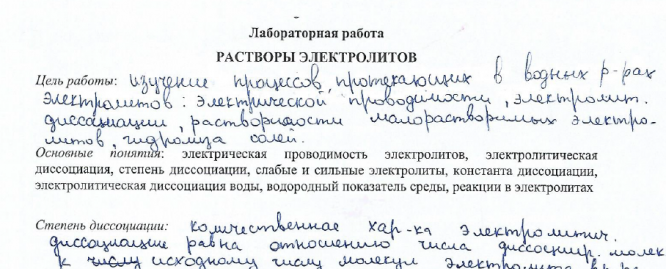 Лабораторная работа
РАСТВОРЫ ЭЛЕКТРОЛИТОВ
Цель работы: изучение процессов, протекающих в водных р-рах
электролитов: электрической проводимости, электролит.
диссоциации, растворимости малорастворимых электро-
литов, гидролиза солей.
Основные понятия: электрическая проводимость электролитов, электролитическая
диссоциация, степень диссоциации, слабые и сильные электролиты, константа диссоциации,
электролитическая диссоциация воды, водородный показатель среды, реакции в электролитах
Степень диссоциации: количественная хар-ка электролитич.
диссоциации равна отношению числа диссоциир. молек
к числу исходному числу молекул электролита в р-ре